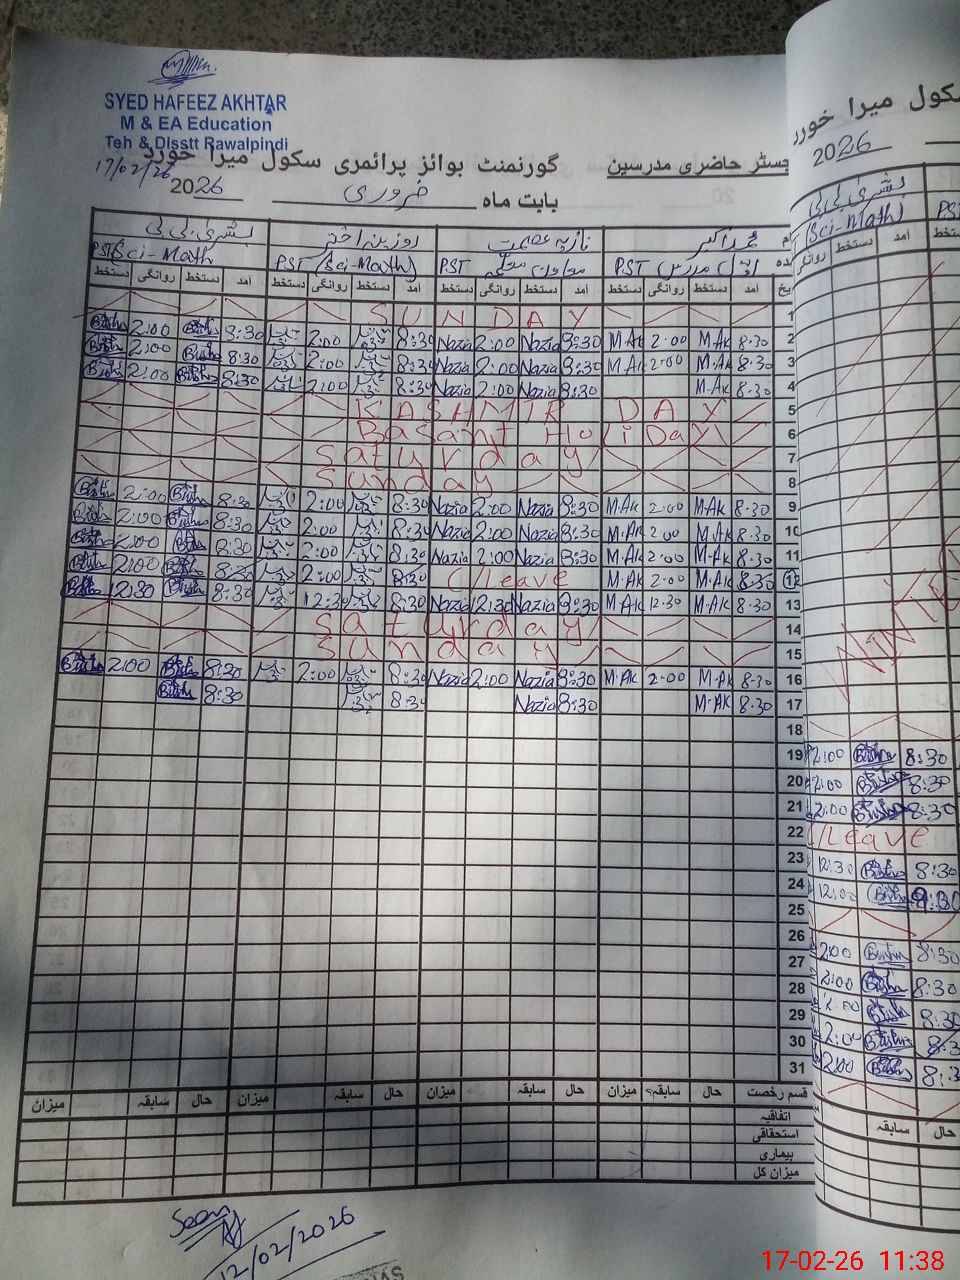 SYED HAFEEZ AKHTAR
M & EA Education
Teh & Disstt Rawalpindi
17/02/26
جسٹر حاضری مدرسین گورنمنٹ بوائز پرائمری سکول میرا خورد
بابت ماہ فروری 2026
محمد اکبر نازیہ عصمت روزینہ اختر بشریٰ بی بی
PST PST PST (Sci-Math) PST (Sci-Math
آمد دستخط روانگی دستخط آمد دستخط روانگی دستخط آمد دستخط روانگی دستخط آمد دستخط روانگی دستخط
1 SUNDAY
2 8:30 M.Ak 2:00 M.Ak 8:30 Nazia 2:00 Nazia 8:30 2:00 8:30 Bisha 2:00 Bisha
3 8:30 M.Ak 2:00 M.Ak 8:30 Nazia 2:00 Nazia 8:30 2:00 8:30 Bisha 2:00 Bisha
4 8:30 M.Ak 8:30 Nazia 2:00 Nazia 8:30 2:00 8:30 Bisha 2:00 Bisha
5 KASHMIR DAY
6 Basant HoliDay
7 Saturday
8 Sunday
9 8:30 M.Ak 2:00 M.Ak 8:30 Nazia 2:00 Nazia 8:30 2:00 8:30 Bisha 2:00 Bisha
10 8:30 M.Ak 2:00 M.Ak 8:30 Nazia 2:00 Nazia 8:30 2:00 8:30 Bisha 2:00 Bisha
11 8:30 M.Ak 2:00 M.Ak 8:30 Nazia 2:00 Nazia 8:30 2:00 8:30 Bisha 2:00 Bisha
12 8:30 M.Ak 2:00 M.Ak C/Leave 8:30 2:00 8:30 Bisha 2:00 Bisha
13 8:30 M.Ak 12:30 M.Ak 8:30 Nazia 12:30 Nazia 8:30 12:30 8:30 Bisha 12:30 Bisha
14 Saturday
15 Sunday
16 8:30 M.Ak 2:00 M.Ak 8:30 Nazia 2:00 Nazia 8:30 2:00 8:30 Bisha 2:00 Bisha
17 8:30 M.Ak 8:30 Nazia 8:30 8:30 Bisha
18
19
20
21
22
23
24
25
26
27
28
29
30
31
قسم رخصت حال سابقہ میزان حال سابقہ میزان حال سابقہ میزان حال سابقہ میزان
اتفاقیہ
استحقاقی
بیماری
میزان کل
12/02/2026
سکول میرا خورد
2026
بشریٰ بی بی
(Sci-Math) PST
آمد دستخط روانگی
8:30 Bisha 2:00
8:30 Bisha 2:00
8:30 Bisha 2:00
/Leave
8:30 Bisha 12:30
9:30 Bisha 12:00
8:30 Bisha 2:00
8:30 Bisha 2:00
8:30 Bisha 2:00
8:3 Bisha 2:00
8:3 Bisha 2:00
حال سابقہ
17-02-26 11:38